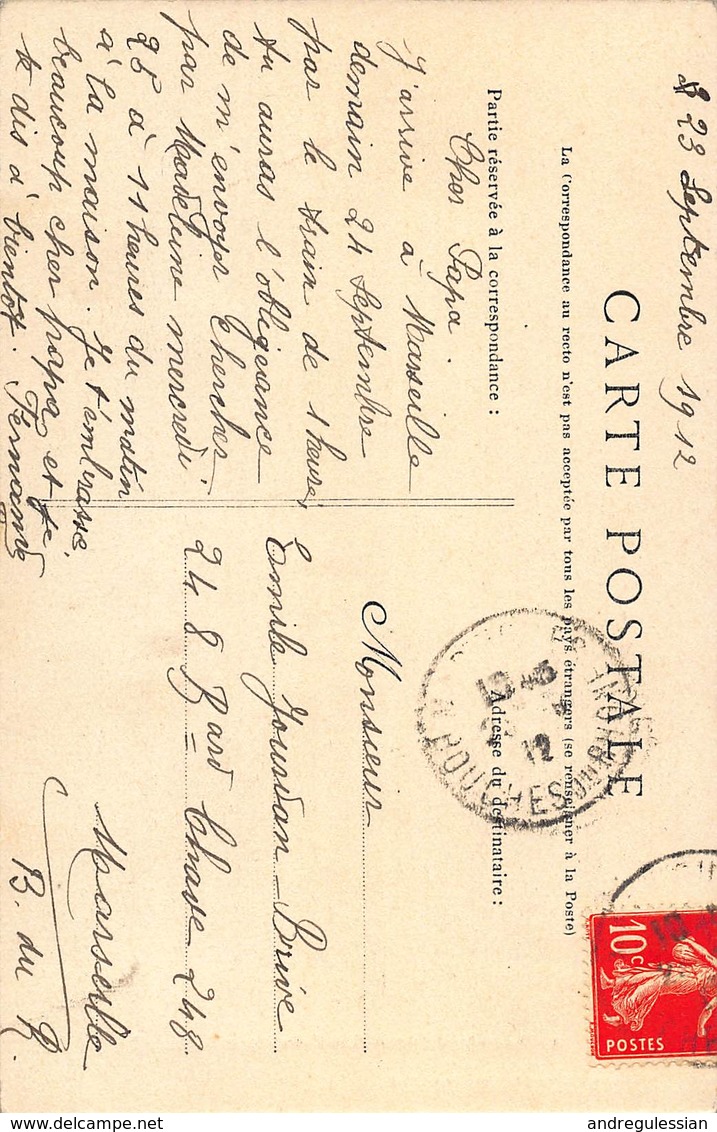 23 Septembre 1912
CARTE POSTALE
La Correspondance au recto n'est pas acceptée par tous les pays étrangers (se renseigner à la Poste)
Partie réservée à la correspondance :
Adresse du destinataire :
Cher Papa.
J'arrive à Marseille
demain 24 Septembre
par le train de 1 heure,
tu auras l'obligeance
de m'envoyer chercher
par Madeleine mercredi
25 à 11 heures du matin
à la maison. Je t'embrasse
beaucoup cher papa et te
dis à bientot. Fernande
Monsieur
Emile Jourdan-Brive
248 Bard Chave 248
Marseille
B. du R.
BOUCHES DU RHONE
12
10c
POSTES
andregulessian